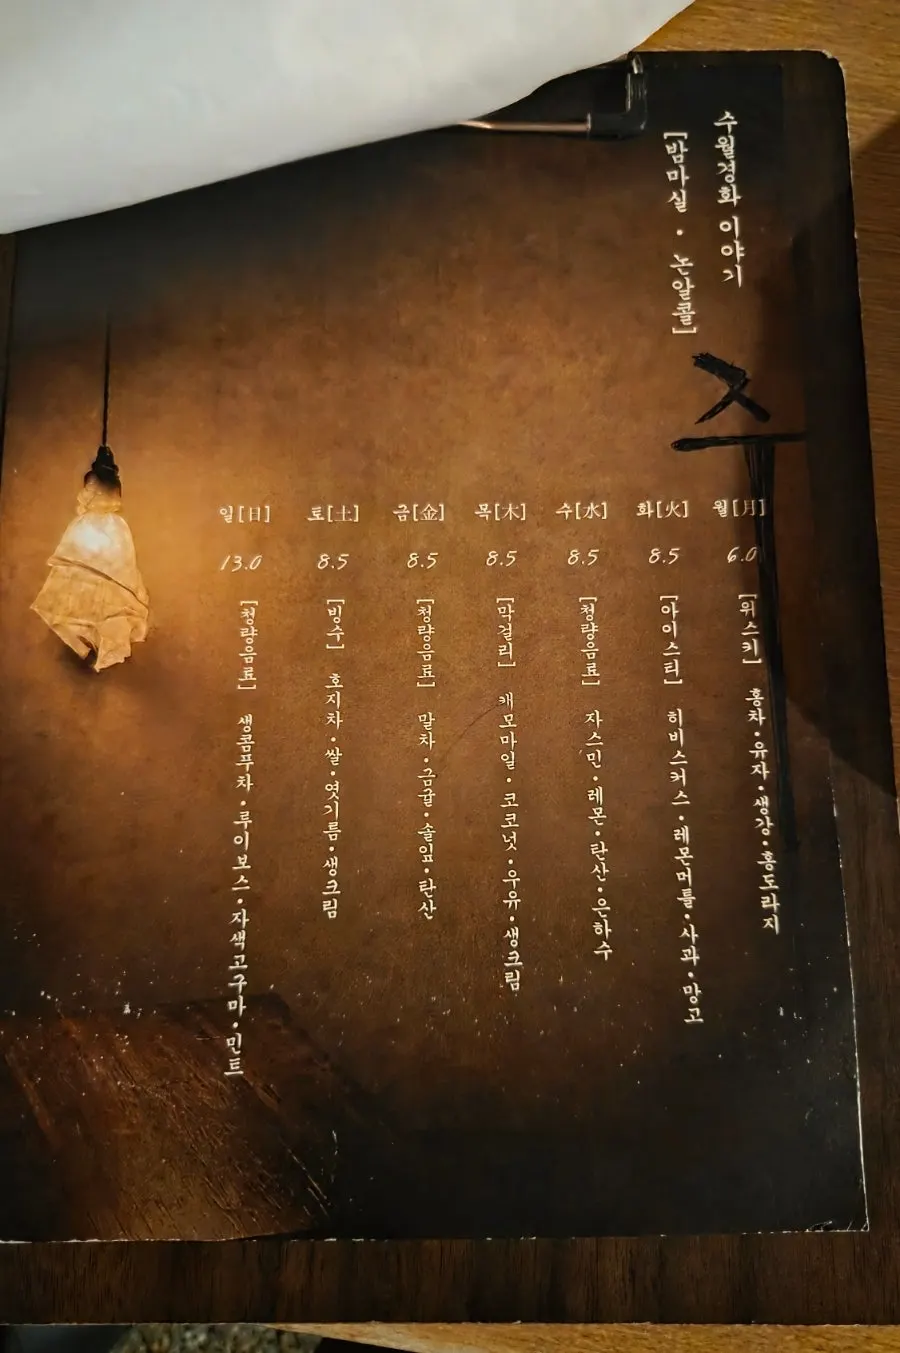 수월경화 이야기
[밤마실 · 논알콜]
주
월[月]
6.0
[위스키] 홍차·유자·생강·홍도라지
화[火]
8.5
[아이스티] 히비스커스·레몬머틀·사과·망고
수[水]
8.5
[청량음료] 자스민·레몬·탄산·은하수
목[木]
8.5
[막걸리] 캐모마일·코코넛·우유·생크림
금[金]
8.5
[청량음료] 말차·금귤·솔잎·탄산
토[土]
8.5
[빙수] 호지차·쌀·엿기름·생크림
일[日]
13.0
[청량음료] 생콤푸차·루이보스·자색고구마·민트